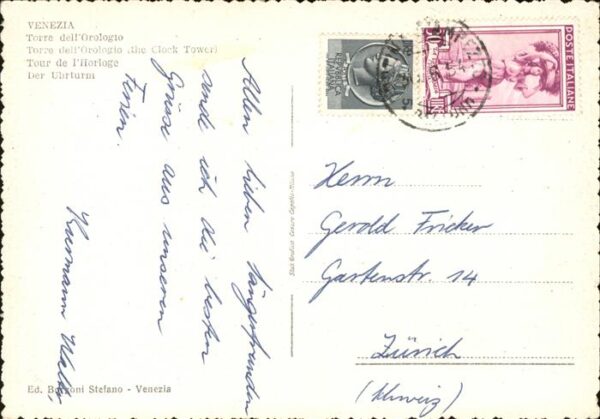 VENEZIA
Torre dell'Orologio
Torre dell'Orologio (the Clock Tower)
Tour de l'Horloge
Der Uhrturm
Allen lieben Sängerfreunden
sende ich die besten
Grüsse aus unseren
Ferien.
Walter
REPUBBLICA
ITALIANA
POSTE ITALIANE
Herrn
Gerold Fricker
Gartenstr. 14
Zürich
(Schweiz)
Ed. Bozzoni Stefano - Venezia